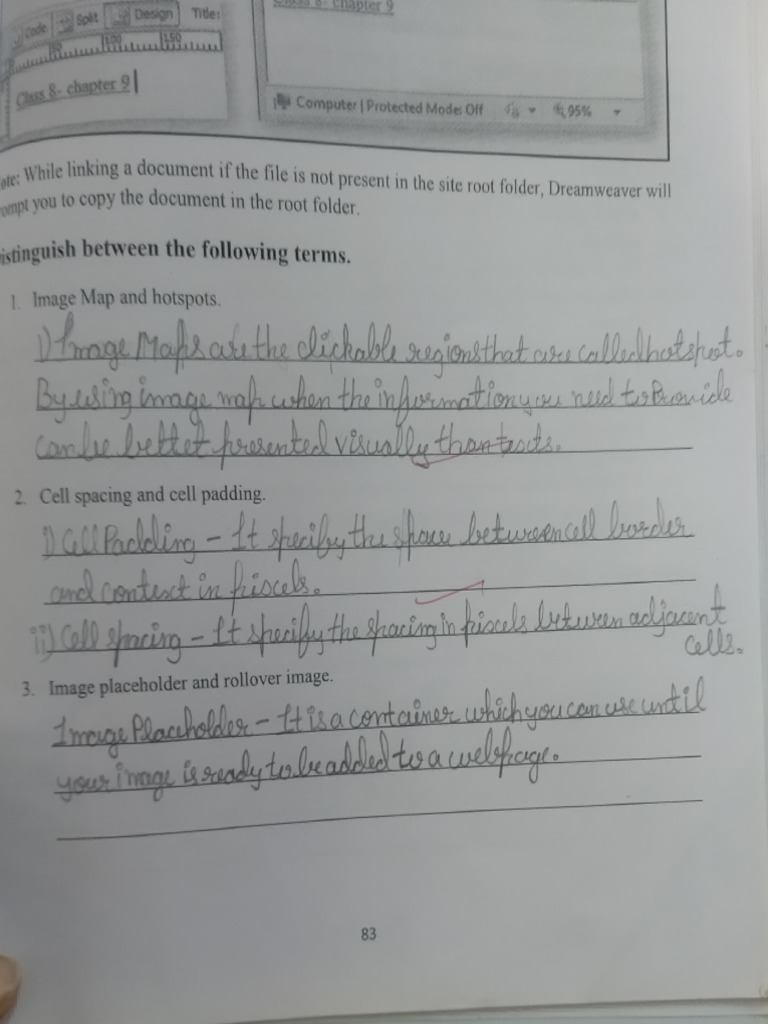 Code Split Design Title:
50 100 150
Class 8- chapter 9
Class 8- chapter 9
Computer | Protected Mode: Off 95%
ote: While linking a document if the file is not present in the site root folder, Dreamweaver will
ompt you to copy the document in the root folder.
istinguish between the following terms.
1. Image Map and hotspots.
i) Image Maps are the clickable regions that are called hotspot.
By using image map when the information you need to Provide
can be better presented visually than texts.
2. Cell spacing and cell padding.
i) Cell Padding - It specify the space between cell border
and context in piscels.
ii) Cell spacing - It specify the spacing in piscels between adjacent
cells.
3. Image placeholder and rollover image.
Image Placeholder - It is a container which you can use until
your image is ready to be added to a webpage.
83